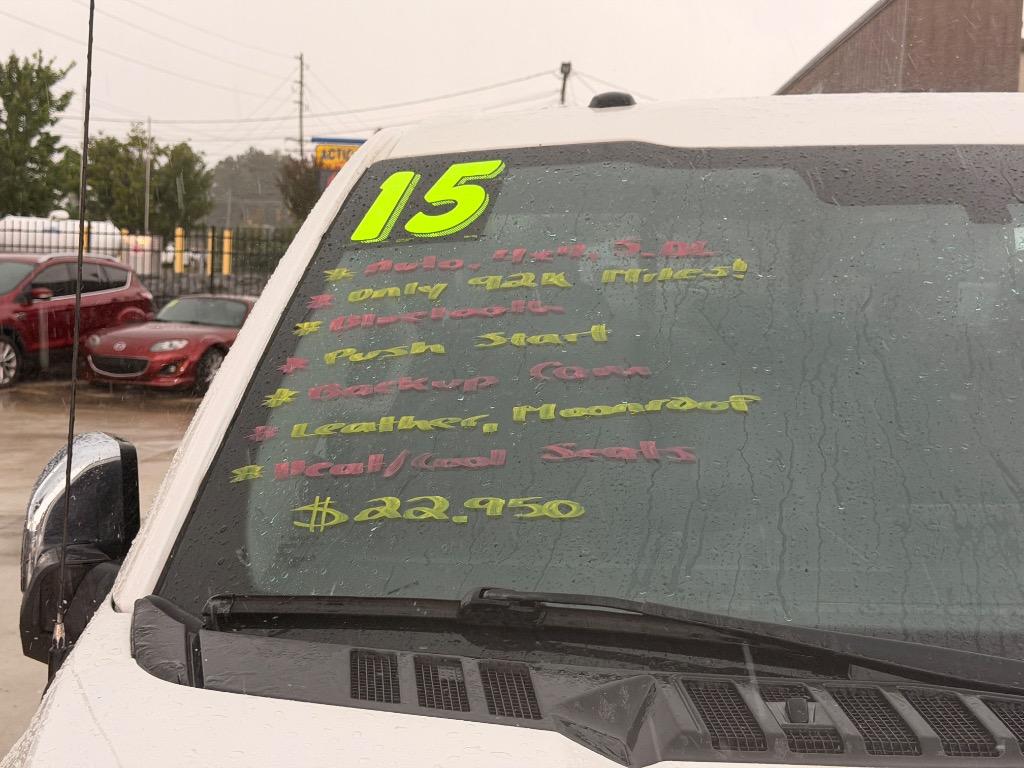 ACTIO
15
* Auto, 4x4, 5.0L
* Only 92K Miles!
* Bluetooth
* Push Start
* Backup Cam
* Leather, Moonroof
* Heat/Cool Seats
$22.950